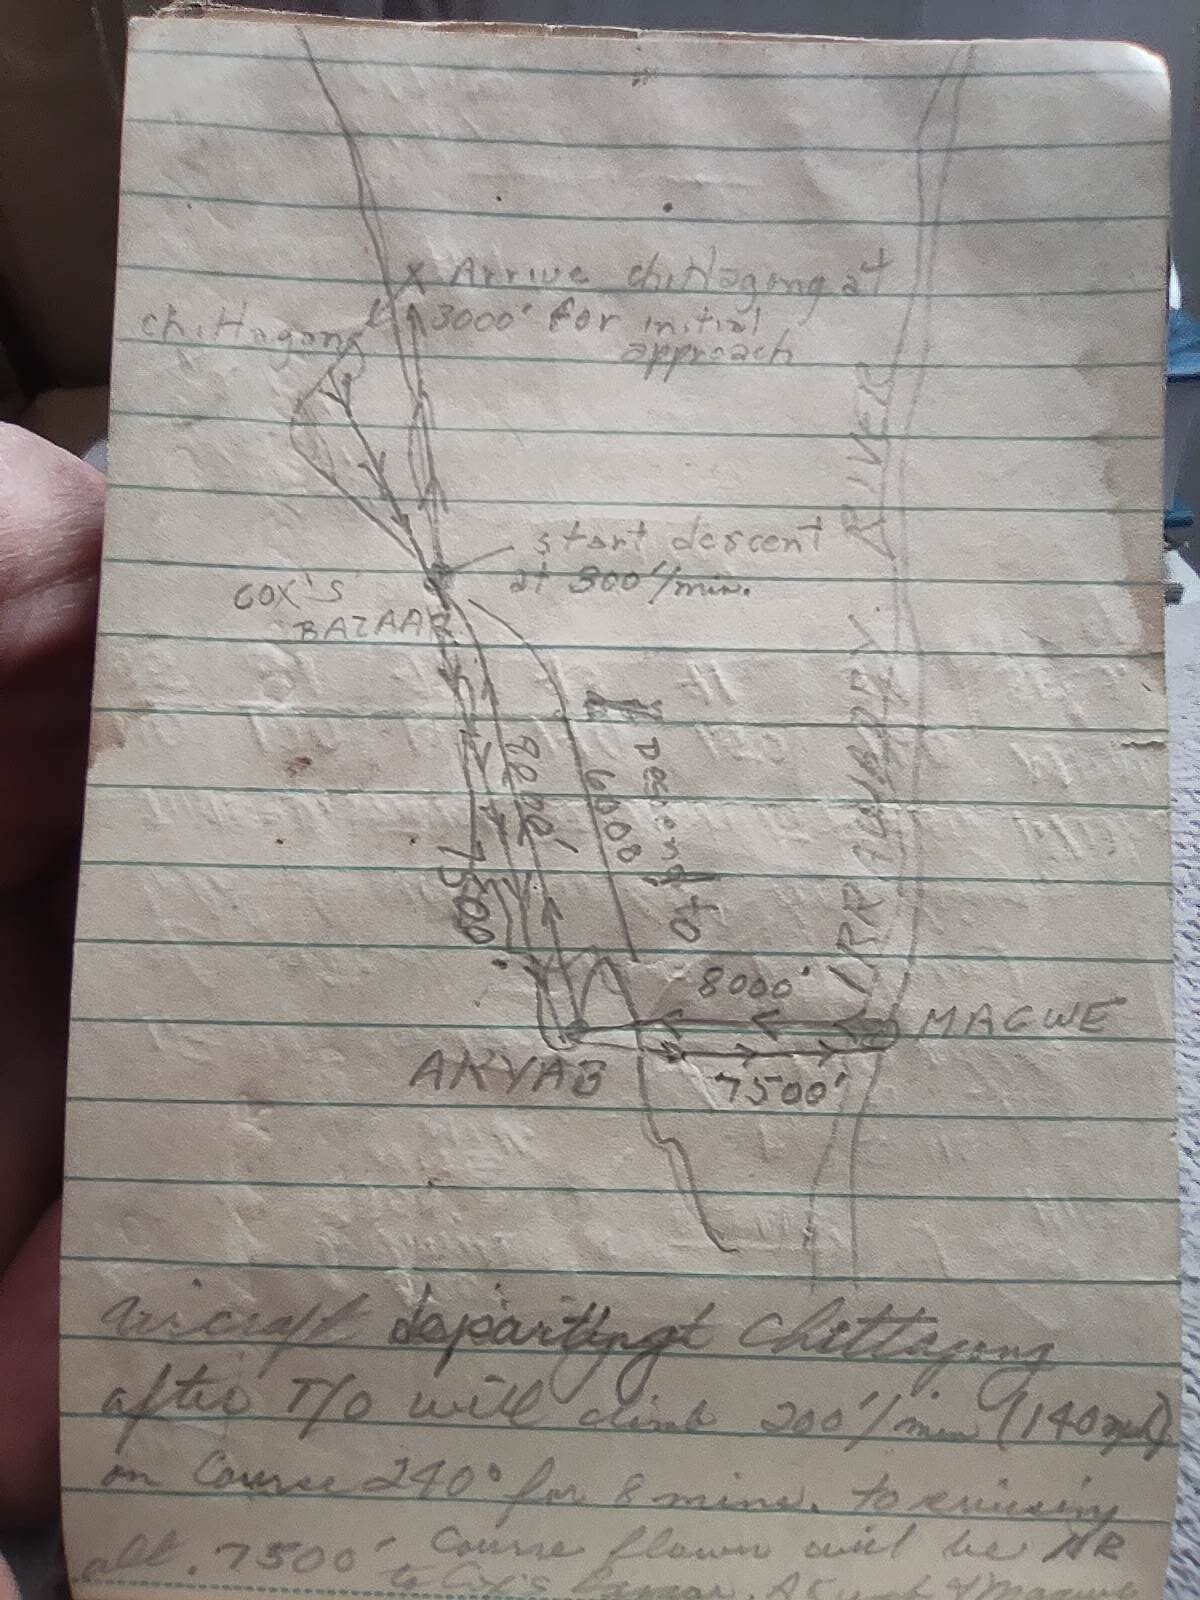 X Arrive chittagong at
3000' for initial
approach
chittagong
RIVER
start descent
at 300'/min.
COX'S
BAZAAR
IRRAWADDY
Descend to
6000
8000'
7500'
8000'
MAGWE
7500'
AKYAB
aricraft departing Chittagong
after T/O will climb 200'/min (140 mph)
on Course 240° for 8 mins. to cruising
alt. 7500' Course flown will be
to Cox's Bazaar, Akyab & Magwe